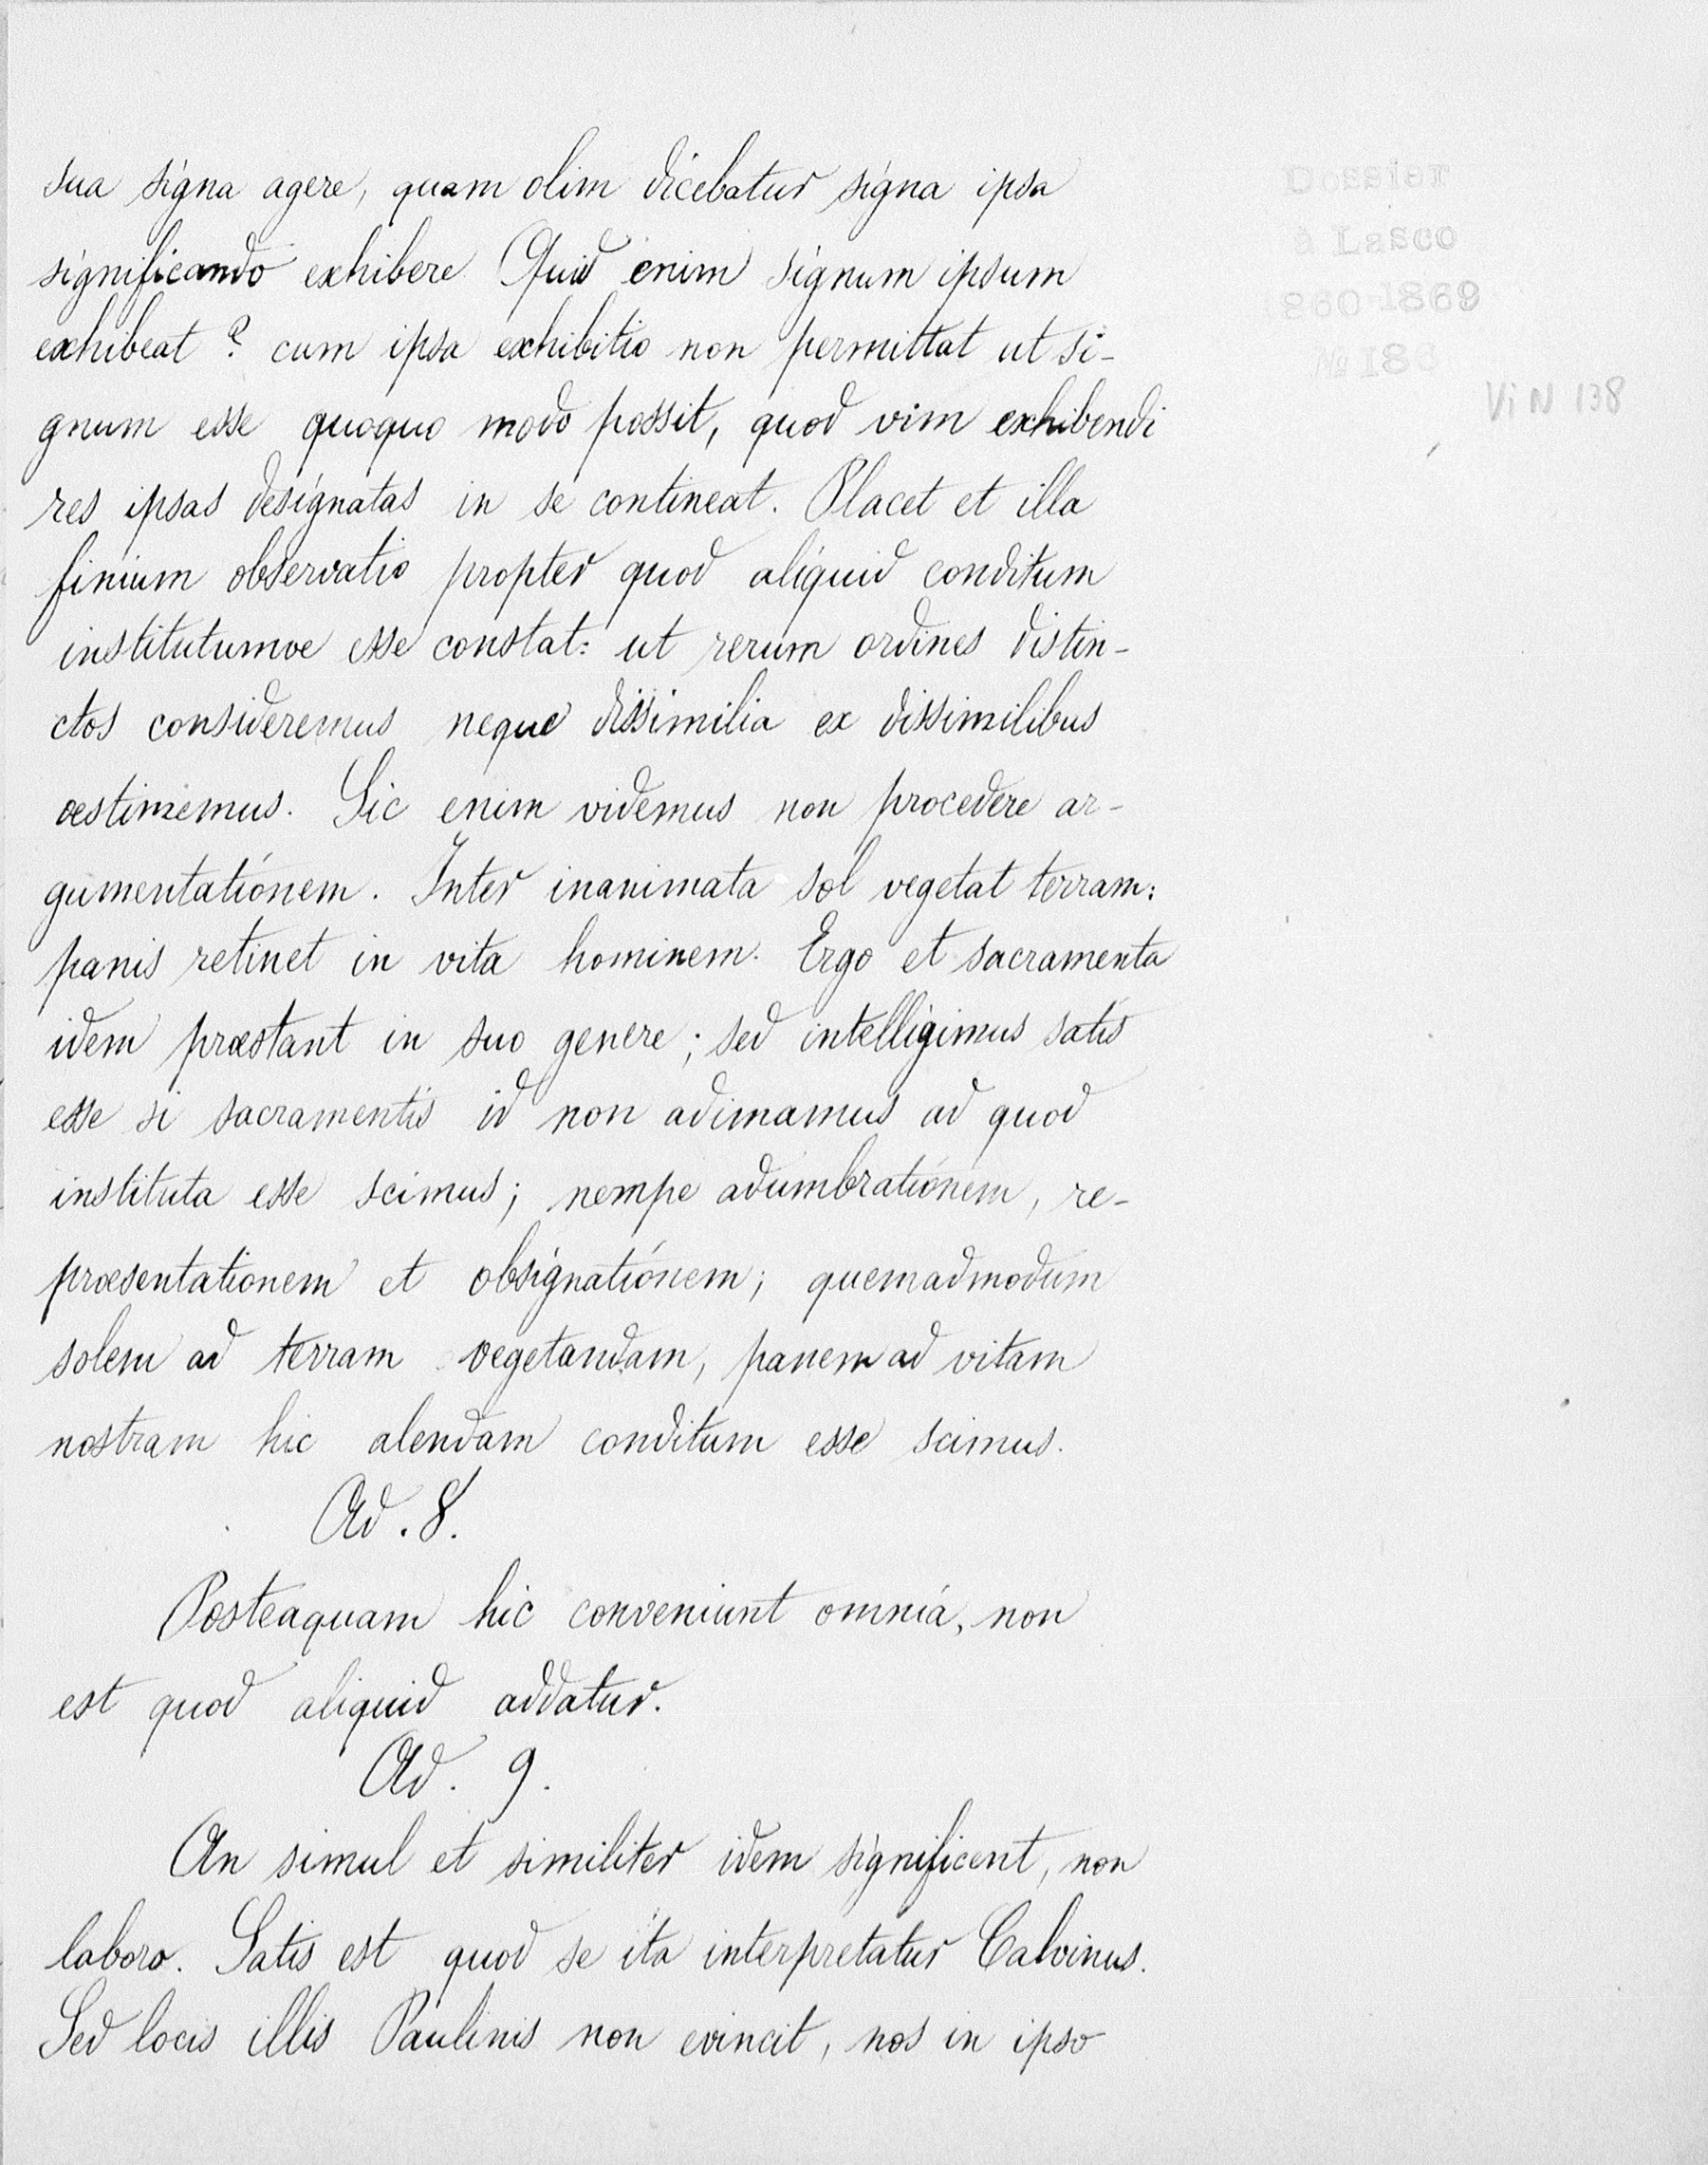 sua signa agere, quam olim dicebatur signa ipsa
significando exhibere. Quid enim signum ipsum
exhibeat? cum ipsa exhibitio non permittat ut si-
gnum esse quoquo modo possit, quod vim exhibendi
res ipsas designatas in se contineat. Placet et illa
finium observatio propter quod aliquid conditum
institutumve esse constat: ut rerum ordines distin-
ctos consideremus neque dissimilia ex dissimilibus
æstimemus. Sic enim videmus non procedere ar-
gumentationem. Inter inanimata sol vegetat terram:
panis retinet in vita hominem. Ergo et sacramenta
idem præstant in suo genere; sed intelligimus satis
esse si sacramentis id non adimamus ad quod
instituta esse scimus; nempe adumbrationem, re-
præsentationem et obsignationem; quemadmodum
solem ad terram vegetandam, panem ad vitam
nostram hic alendam conditum esse scimus.
Ad. 8.
Posteaquam hic conveniunt omnia, non
est quod aliquid addatur.
Ad. 9.
An simul et similiter idem significent, non
laboro. Satis est quod se ita interpretatur Calvinus.
Sed locis illis Paulinis non evincit, nos in ipso
Dossier
à Lasco
860-1869
№
ViN 138